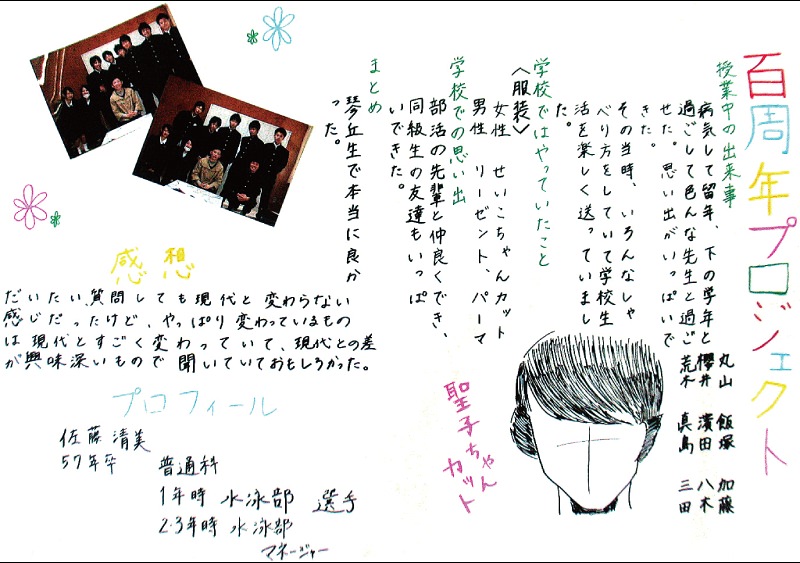 百周年プロジェクト
丸山 飯塚 加藤
櫻井 濱田 八木
荒木 真島 三田
授業中の出来事
病気して留年、下の学年と
過ごして色んな先生と過ご
せた。思い出がいっぱいで
きた。
その当時、いろんなしゃ
べり方をしていて学校生
活を楽しく送っていまし
た。
学校ではやっていたこと
〈服装〉
女性 せいこちゃんカット
男性 リーゼント、パーマ
学校での思い出
部活の先輩と仲良くでき、
同級生の友達もいっぱ
いできた。
まとめ
琴丘生で本当に良か
った。
聖子ちゃん
カット
感想
だいたい質問しても現代と変わらない
感じだったけど、やっぱり変わっているもの
は現代とすごく変わっていて、現代との差
が興味深いもので聞いていておもしろかった。
プロフィール
佐藤清美
57年卒 普通科
1年時 水泳部 選手
2・3年時 水泳部
マネージャー